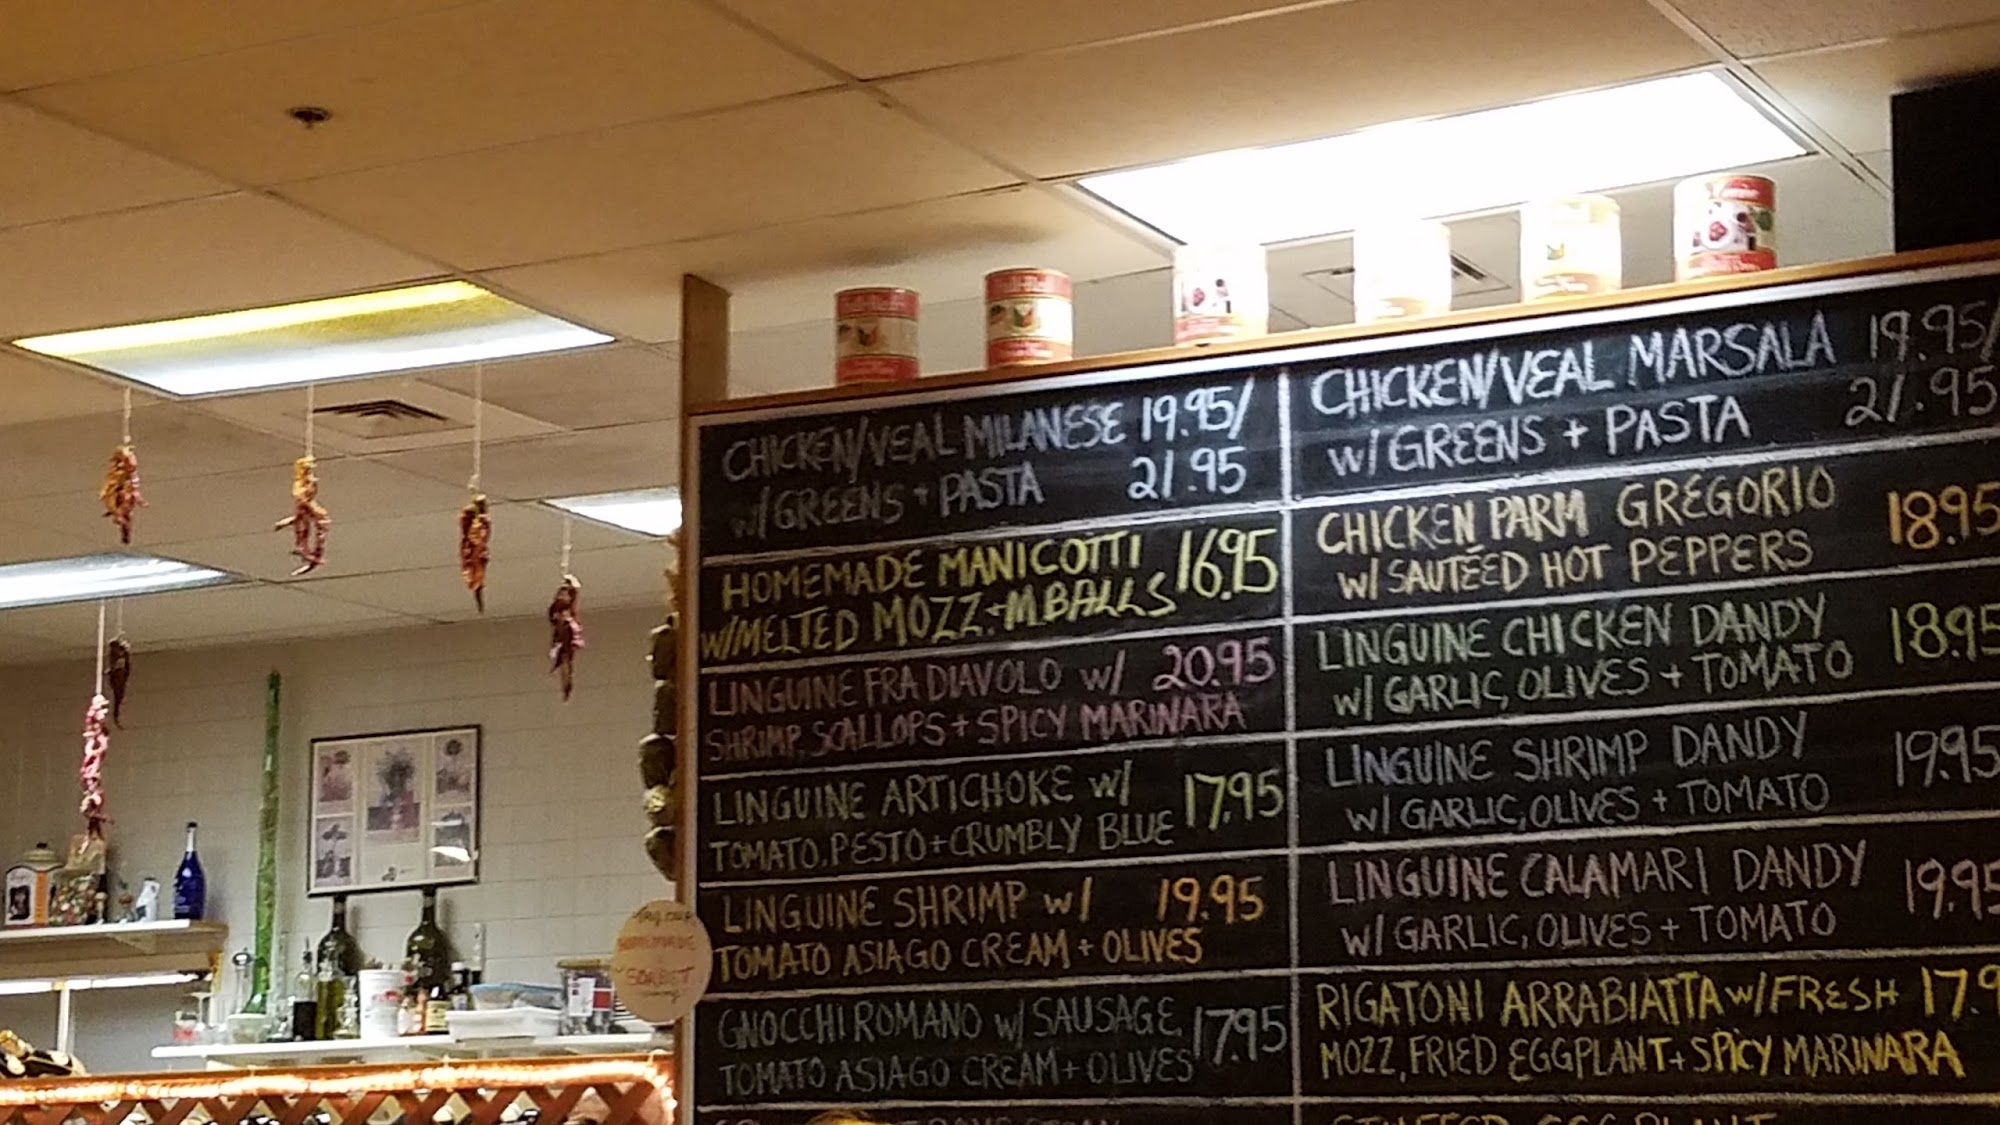 CHICKEN/VEAL MILANESE 19.95/
W/GREENS + PASTA 21.95
HOMEMADE MANICOTTI 16.95
W/MELTED MOZZ.+M.BALLS
LINGUINE FRA DIAVOLO W/ 20.95
SHRIMP, SCALLOPS + SPICY MARINARA
LINGUINE ARTICHOKE W/ 17.95
TOMATO, PESTO + CRUMBLY BLUE
LINGUINE SHRIMP W/ 19.95
TOMATO ASIAGO CREAM + OLIVES
GNOCCHI ROMANO W/ SAUSAGE, 17.95
TOMATO ASIAGO CREAM + OLIVES
CHICKEN/VEAL MARSALA 19.95/
W/GREENS + PASTA 21.95
CHICKEN PARM GREGORIO 18.95
W/ SAUTÉED HOT PEPPERS
LINGUINE CHICKEN DANDY 18.95
W/ GARLIC, OLIVES + TOMATO
LINGUINE SHRIMP DANDY 19.95
W/ GARLIC, OLIVES + TOMATO
LINGUINE CALAMARI DANDY 19.95
W/ GARLIC, OLIVES + TOMATO
RIGATONI ARRABIATTA W/FRESH 17.9
MOZZ, FRIED EGGPLANT + SPICY MARINARA
STUFFED EGGPLANT
HOMEMADE
SORBET